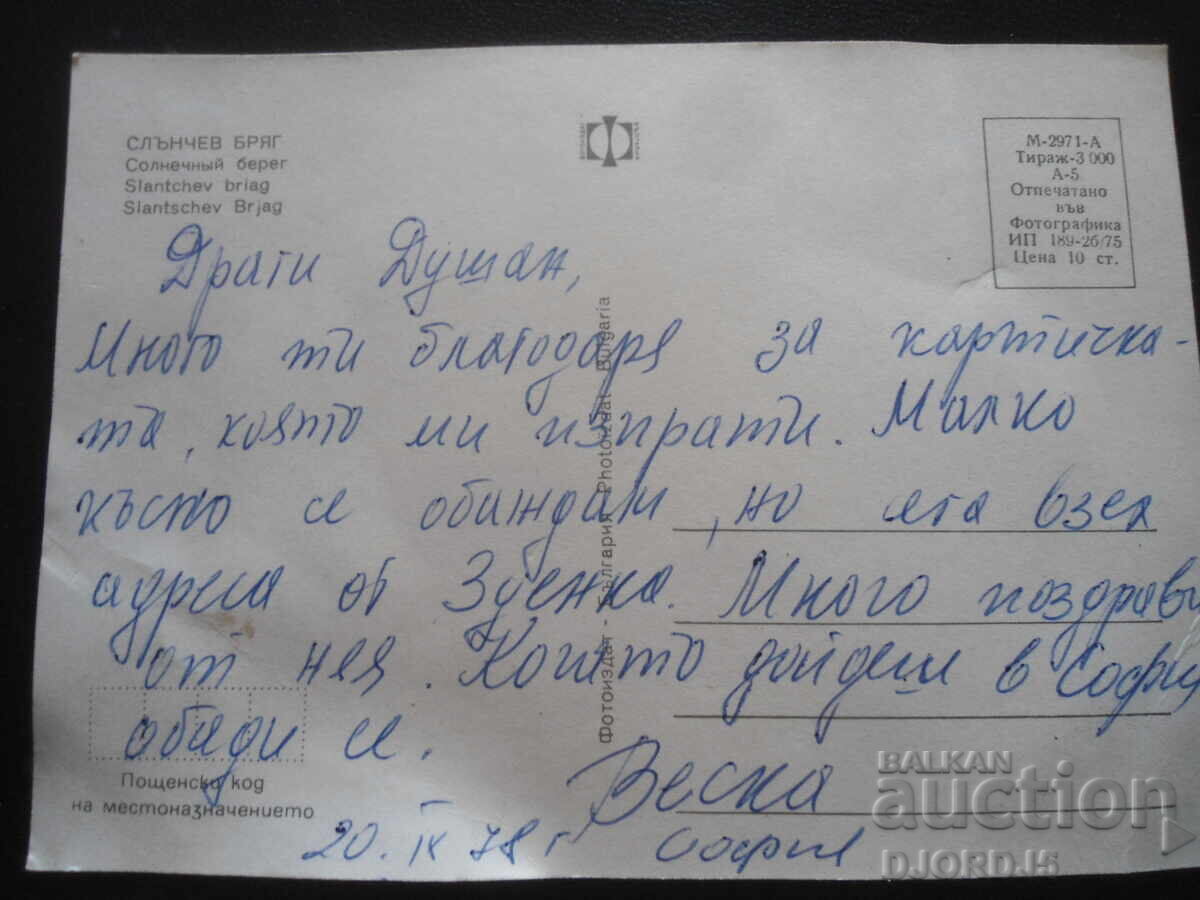 СЛЪНЧЕВ БРЯГ
Солнечный берег
Slantchev briag
Slantschev Brjag
М-2971-А
Тираж-3 000
А-5
Отпечатано
във
Фотографика
ИП 189-26/75
Цена 10 ст.
Драги Душан,
Много ти благодаря за картичка-
та, която ми изпрати. Малко
късно се обаждам, но сега взех
адреса от Зденка. Много поздрави
от нея. Когато дойдеш в София
обади се.
Веска
20. IX 78 г София
Фотоиздат - България Photoizdat - Bulgaria
Пощенски код
на местоназначението
BALKAN
auction
DJORDJ5